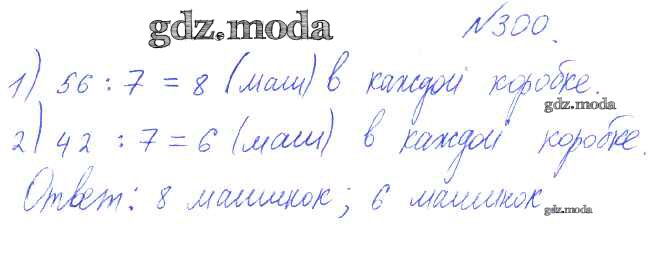 gdz.moda №300.
1) 56 : 7 = 8 (маш) в каждой коробке.
gdz.moda
2) 42 : 7 = 6 (маш) в каждой коробке.
Ответ: 8 машинок; 6 машинок
gdz.moda